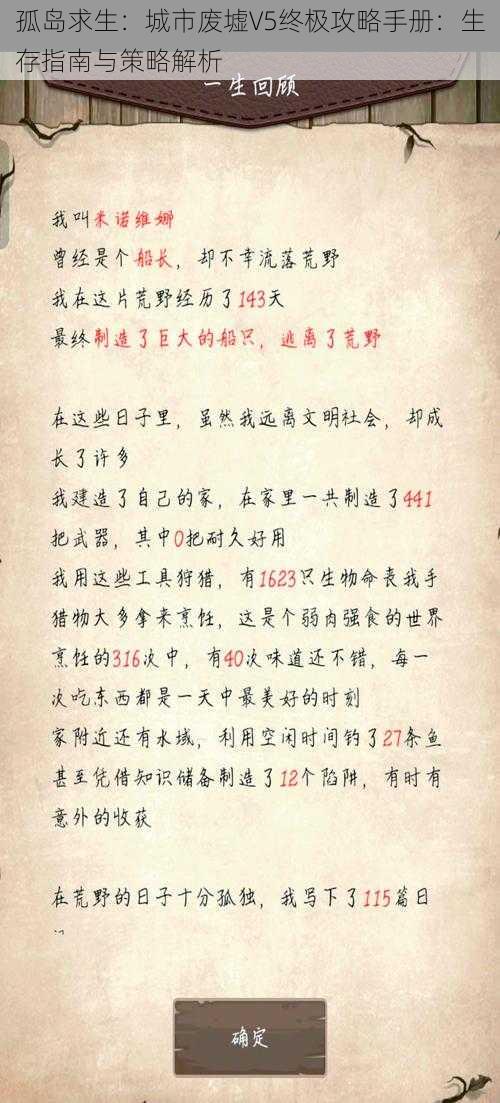 孤岛求生：城市废墟V5终极攻略手册：生
存指南与策略解析
一生回顾
我叫米诺维娜
曾经是个船长，却不幸流落荒野
我在这片荒野经历了143天
最终制造了巨大的船只，逃离了荒野
在这些日子里，虽然我远离文明社会，却成
长了许多
我建造了自己的家，在家里一共制造了441
把武器，其中0把耐久好用
我用这些工具狩猎，有1623只生物命丧我手
猎物大多拿来烹饪，这是个弱肉强食的世界
烹饪的316次中，有40次味道还不错，每一
次吃东西都是一天中最美好的时刻
家附近还有水域，利用空闲时间钓了27条鱼
甚至凭借知识储备制造了12个陷阱，有时有
意外的收获
在荒野的日子十分孤独，我写下了115篇日
确定